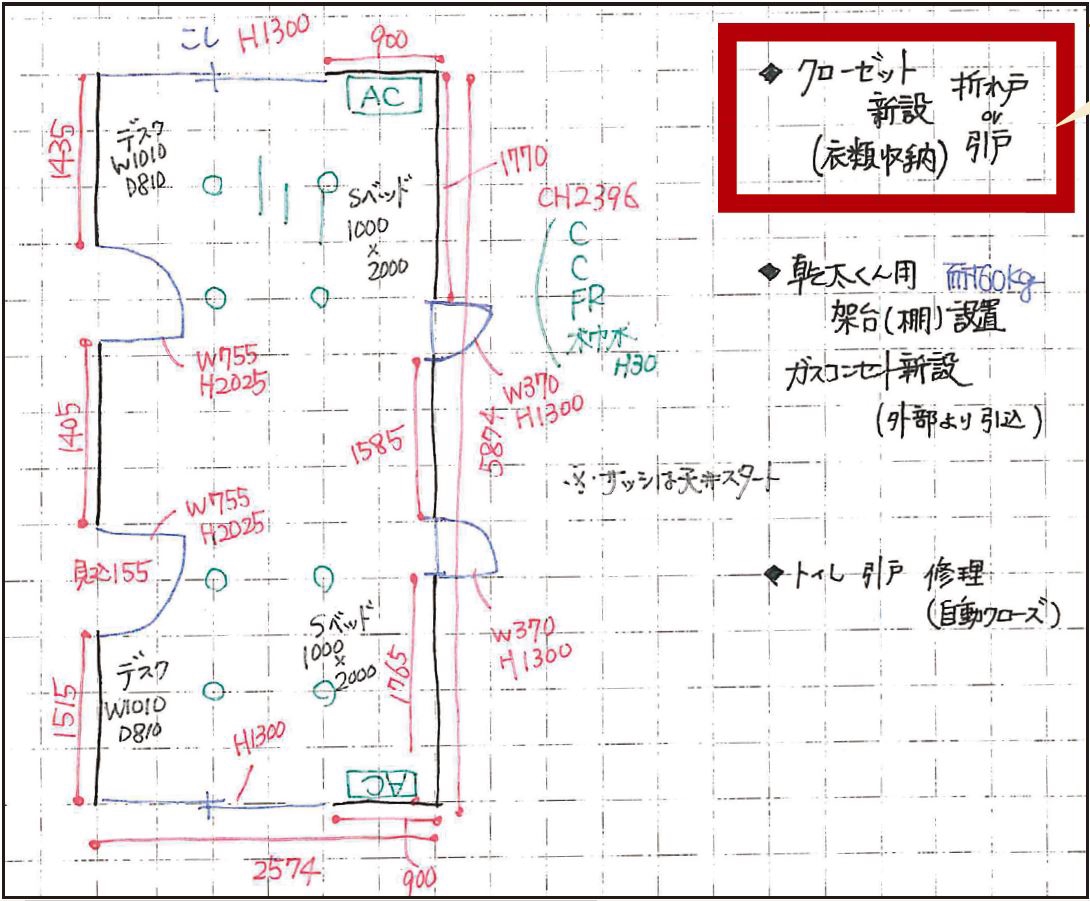 こし H1300
900
AC
1435
デスク
W1010
D810
Sベッド
1000
×
2000
1770
CH2396
C
C
FR
木巾木
H30
W755
H2025
W370
H1300
1405
1585
5874
W755
H2025
見込155
W370
H1300
Sベッド
1000
×
2000
1765
デスク
W1010
D810
1515
H1300
AC
2574
900
◆ クローゼット
新設
(衣類収納)
折れ戸
or
引戸
◆ 乾太くん用 耐60kg
架台(棚)設置
ガスコンセント新設
(外部より引込)
※サッシは天井スタート
◆ トイレ 引戸 修理
(自動クローズ)